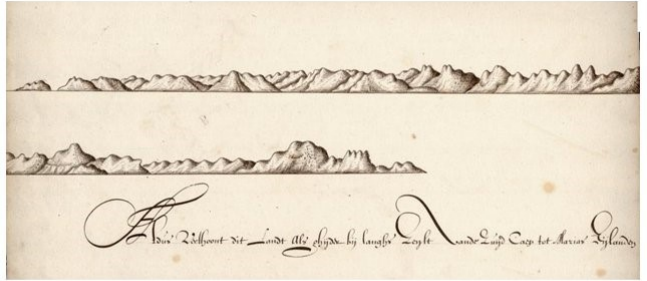 Aldus Verthoont dit Landt Als ghÿder bÿ langhs Zeÿlt vande Zuÿd Caep tot Marias Eÿlanden